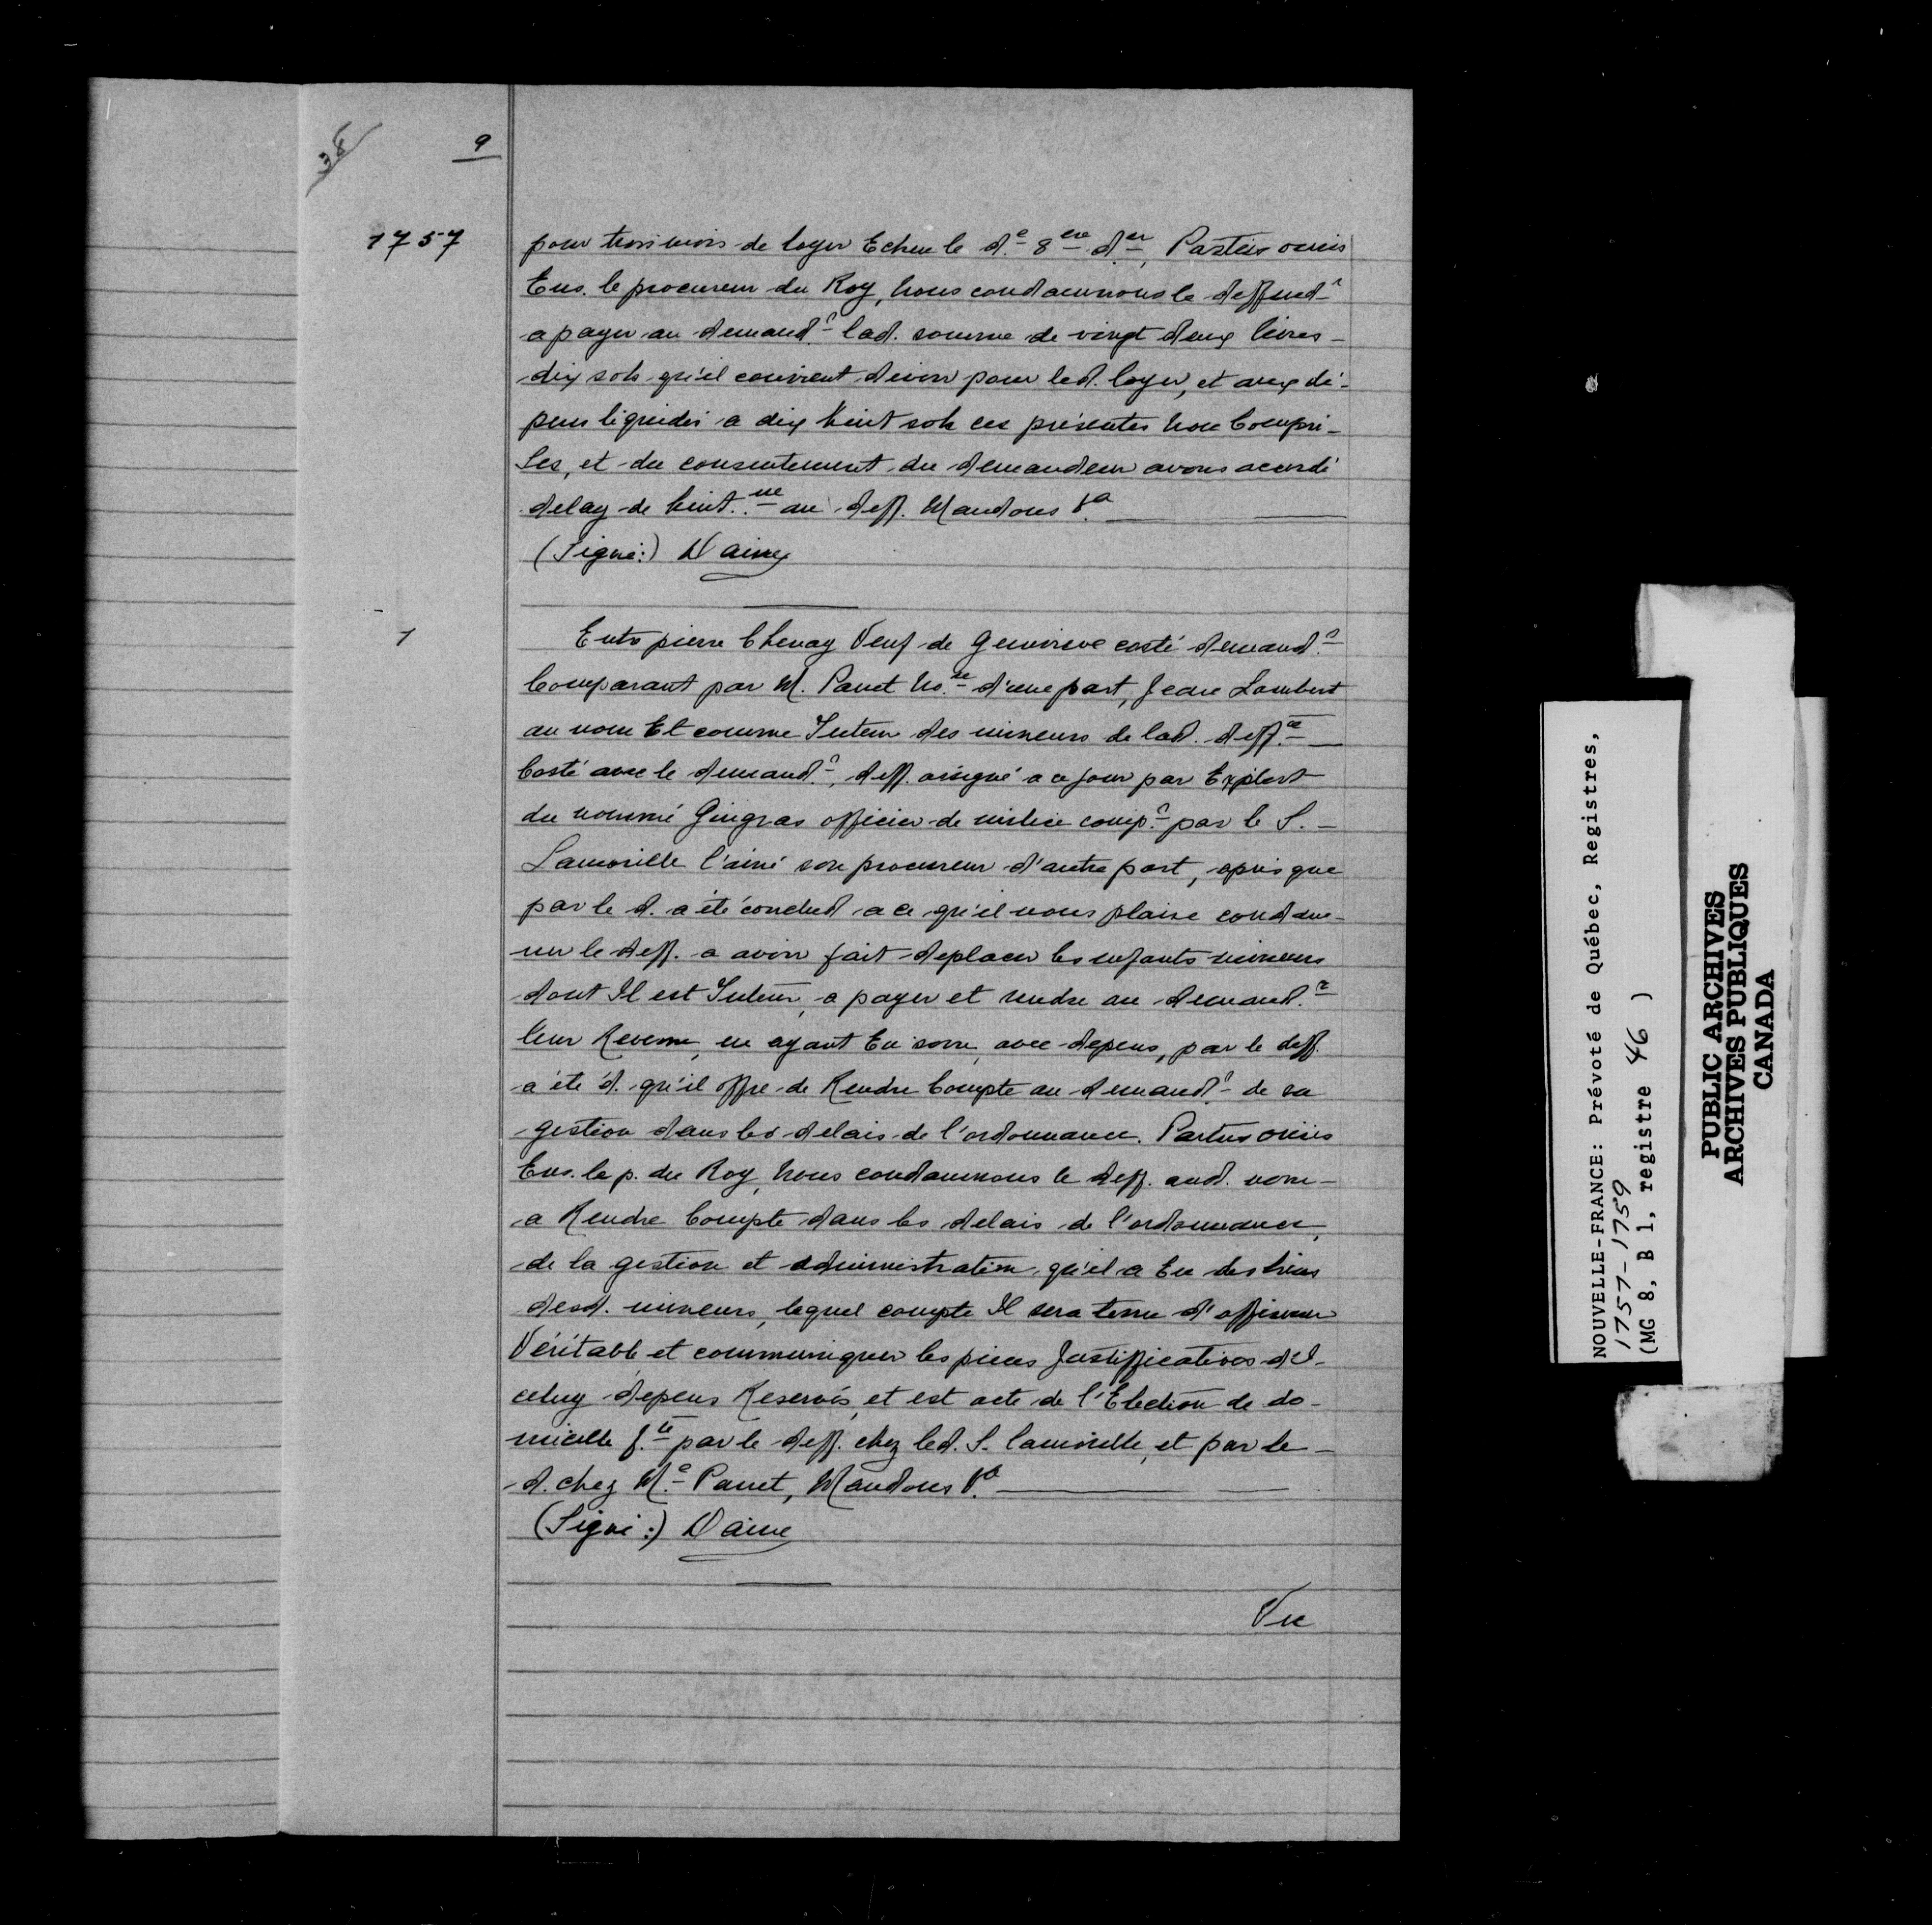 38
9
1757
pour trois mois de loyer Echeu le d.e 8bre d.er, Parties ouies
Ens. le procureur du Roy, Nous condamnons le deffend.r
a payer au demand.r lad. somme de vingt deux livres
dix sols qu'il convient devoir pour led. loyer, et aux dé-
pens liquidés a dix huit sols ces présentes Non Compri-
ses, et du consentement du demandeur avons acordé
delay de huit.ne au deff. Mandons &.a
(Signé:) Daine
1
Entre pierre Chenay Veuf de Genevieve costé demand.r
Comparant par M. Panet No.re d'une part, Jean Lambert
au nom Et comme Tuteur des mineurs de lad. deff.te
Costé avec le demand.r, deff. assigné a ce jour par Exploit
du nommé Gingras officier de milice comp.t par le S.
Lamorille l'ainé son procureur d'autre part, apris que
par le d. a été conclud a ce qu'il nous plaise condam-
ner le deff. a avoir fait deplacer les enfants mineurs
dont Il est Tuteur, a payer et rendre au demand.r
leur Revenu, en ayant Eu soin, avec depens, par le deff.
a été d. qu'il offre de Rendre Compte au demand.r de sa
gestion dans les delais de l'ordonnance. Parties ouies
Ens. le p. du Roy, Nous condamnons le deff. aud. nom
a Rendre Compte dans les delais de l'ordonnance,
de la gestion et administration qu'il a Eu des biens
desd. mineurs, lequel compte Il sera tenu d'affirmer
Véritable et communiquer les pieces Justifficatives d'I-
celuy depens Reservés, et est acte de l'Election de do-
micille f.te par le deff. chez led. S. lamorille, et par le
d. chez M.e Panet, Mandons &.a
(Signé:) Daine
Vu
NOUVELLE-FRANCE: Prévoté de Québec, Registres,
1757-1759
(MG 8, B 1, registre 46 )
PUBLIC ARCHIVES
ARCHIVES PUBLIQUES
CANADA